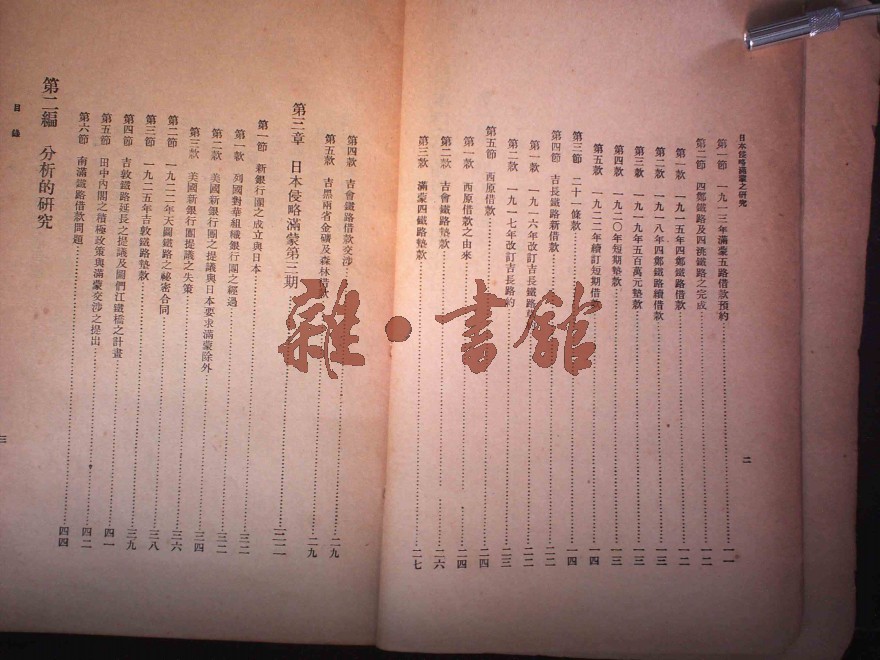 日本侵略滿蒙之研究
二
第一節 一九一三年滿蒙五路借款預約……一一
第二節 四鄭鐵路及四洮鐵路之完成……一二
第一款 一九一五年四鄭鐵路借款……一二
第二款 一九一八年四鄭鐵路續借款……一三
第三款 一九一九年五百萬元墊款……一三
第四款 一九二〇年短期墊款……一三
第五款 一九二二年續訂短期借……一四
第三節 二十一條款……一四
第四節 吉長鐵路新借款……二二
第一款 一九一六年改訂吉長鐵路……二二
第二款 一九一七年改訂吉長路約……二三
第五節 西原借款……二四
第一款 西原借款之由來……二四
第二款 吉會鐵路墊款……二六
第三款 滿蒙四鐵路墊款……二七
第四款 吉會鐵路借款交涉……二九
第五款 吉黑兩省金礦及森林借款……二九
第三章 日本侵略滿蒙第三期……三二
第一節 新銀行團之成立與日本……三二
第一款 列國對華組織銀行團之經過……三二
第二款 美國新銀行團之提議與日本要求滿蒙除外……三四
第三款 美國新銀行團提議之失策……三四
第二節 一九二二年天圖鐵路之祕密合同……三六
第三節 一九二五年吉敦鐵路墊款……三八
第四節 吉敦鐵路延長之提議及圖們江鐵橋之計畫……三九
第五節 田中內閣之積極政策與滿蒙交涉之提出……四一
第六節 南滿鐵路借款問題……四二
第二編 分析的研究……四四
目錄
三
雜·書館